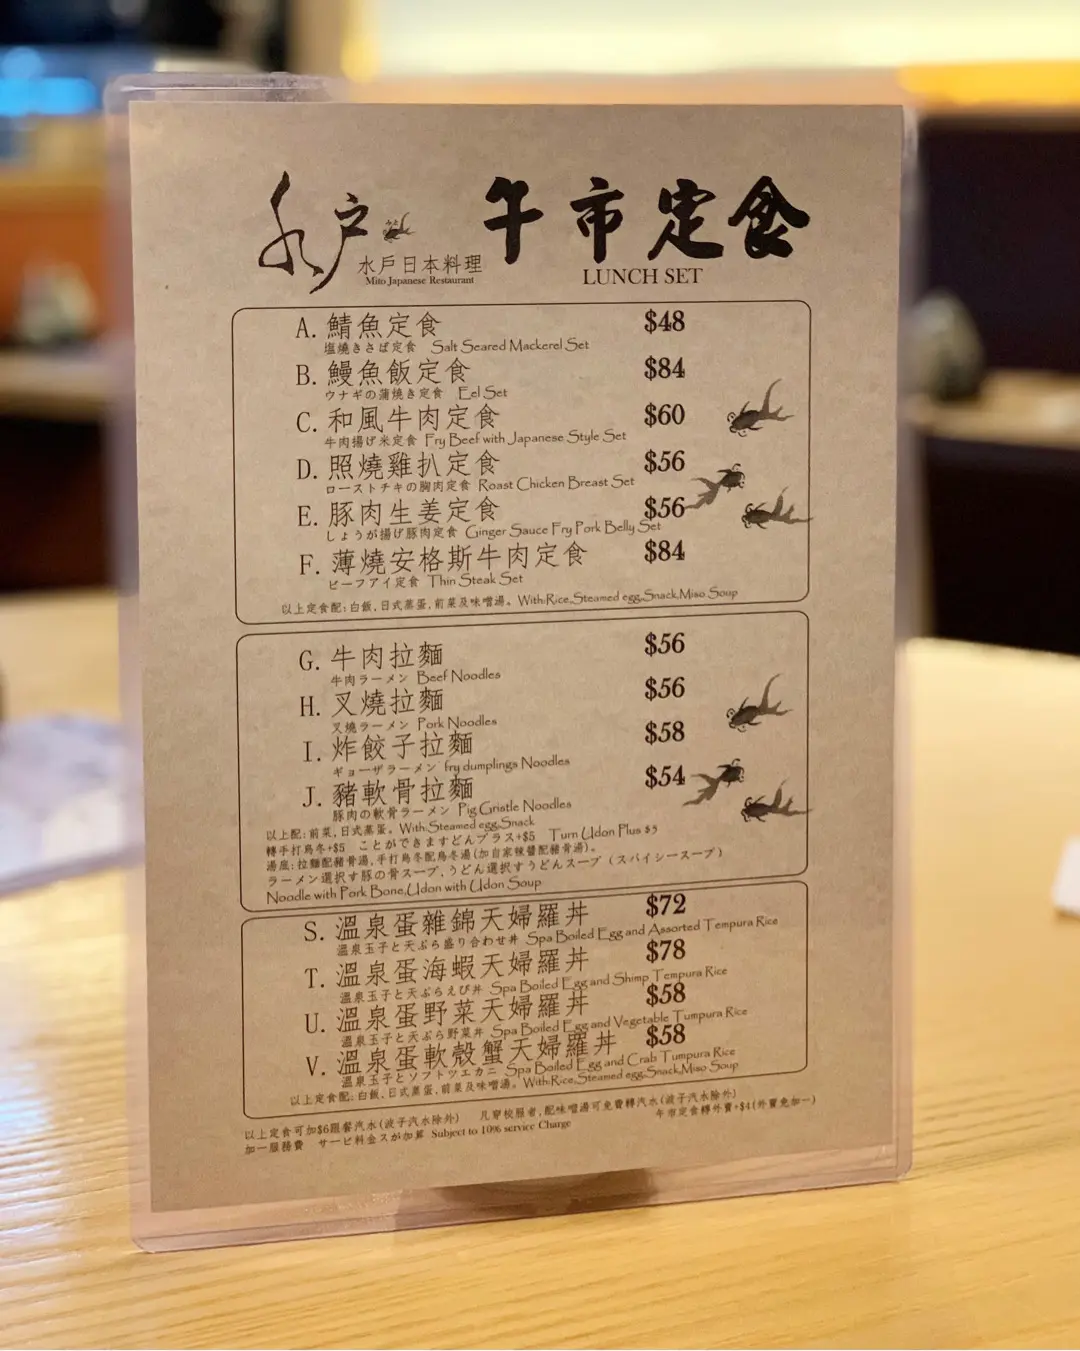 水戶 午市定食
水戶日本料理
Mito Japanese Restaurant
LUNCH SET
A. 鯖魚定食 $48
塩焼きさば定食 Salt Seared Mackerel Set
B. 鰻魚飯定食 $84
ウナギの蒲焼き定食 Eel Set
C. 和風牛肉定食 $60
牛肉揚げ米定食 Fry Beef with Japanese Style Set
D. 照燒雞扒定食 $56
ローストチキの胸肉定食 Roast Chicken Breast Set
E. 豚肉生姜定食 $56
しょうが揚げ豚肉定食 Ginger Sauce Fry Pork Belly Set
F. 薄燒安格斯牛肉定食 $84
ビーフアイ定食 Thin Steak Set
以上定食配:白飯,日式蒸蛋,前菜及味噌湯。With:Rice,Steamed egg,Snack,Miso Soup
G. 牛肉拉麵 $56
牛肉ラーメン Beef Noodles
H. 叉燒拉麵 $56
叉燒ラーメン Pork Noodles
I. 炸餃子拉麵 $58
ギョーザラーメン fry dumplings Noodles
J. 豬軟骨拉麵 $54
豚肉の軟骨ラーメン Pig Gristle Noodles
以上配:前菜,日式蒸蛋。With:Steamed egg,Snack
轉手打烏冬+$5 ことができますどんプラス+$5 Turn Udon Plus $5
湯底:拉麵配豬骨湯,手打烏冬配烏冬湯(加自家辣醬配豬骨湯)。
ラーメン選択す豚の骨スープ,うどん選択すうどんスープ(スパイシースープ)
Noodle with Pork Bone,Udon with Udon Soup
S. 溫泉蛋雜錦天婦羅丼 $72
溫泉玉子と天ぷら盛り合わせ丼 Spa Boiled Egg and Assorted Tempura Rice
T. 溫泉蛋海蝦天婦羅丼 $78
溫泉玉子と天ぷらえび丼 Spa Boiled Egg and Shimp Tempura Rice
U. 溫泉蛋野菜天婦羅丼 $58
溫泉玉子と天ぷら野菜丼 Spa Boiled Egg and Vegetable Tumpura Rice
V. 溫泉蛋軟殼蟹天婦羅丼 $58
溫泉玉子とソフトツエカニ Spa Boiled Egg and Crab Tumpura Rice
以上定食配:白飯,日式蒸蛋,前菜及味噌湯。With:Rice,Steamed egg,Snack,Miso Soup
以上定食可加$6跟餐汽水(波子汽水除外) 凡穿校服者,配味噌湯可免費轉汽水(波子汽水除外)
加一服務費 サービ料金スが加算 Subject to 10% service Charge 午市定食轉外賣+$4(外賣免加一)